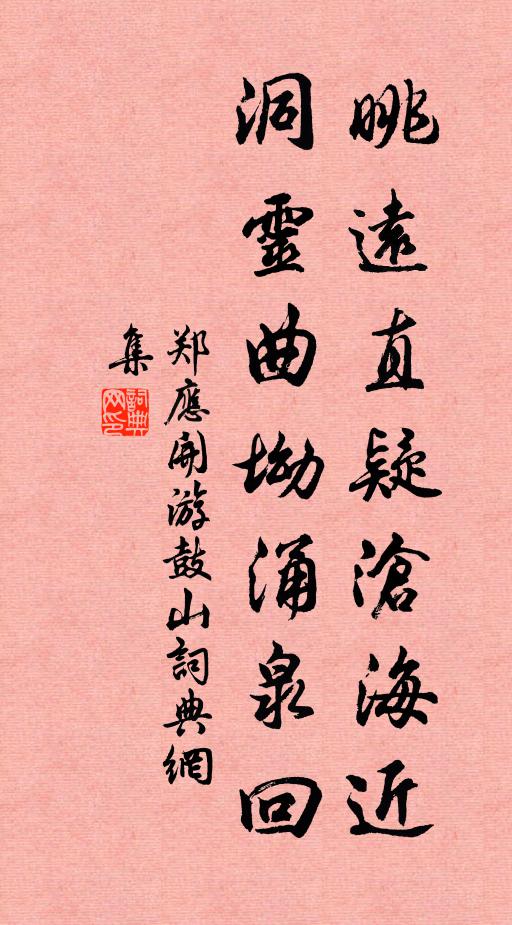 眺遠直疑滄海近
洞靈曲坳涌泉回
郑應開游鼓山詞典網
集
詞典
网印